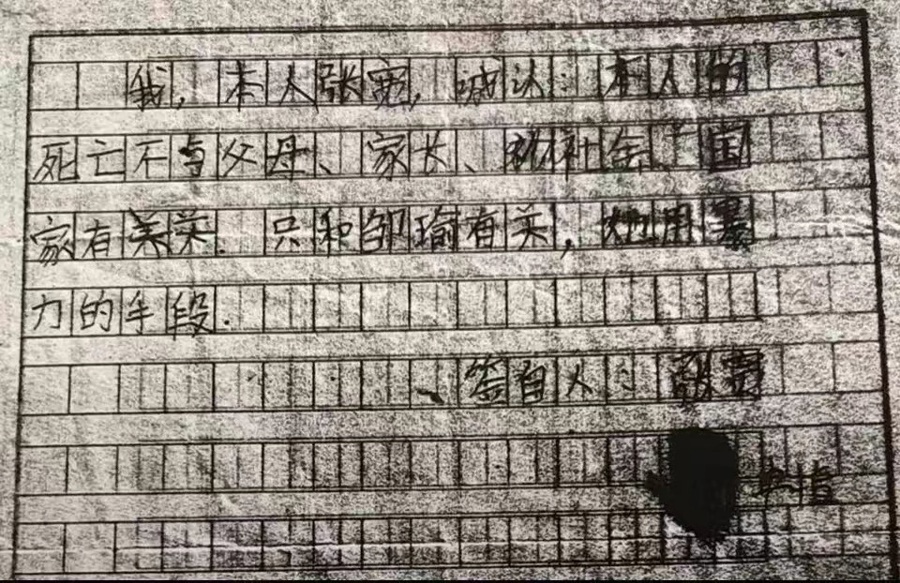 我,本人张宽,诚认:本人的
死亡不与父母、家长、社会、国
家有关. 只和邹瑜有关,她用暴
力的手段.
签自人: 张宽